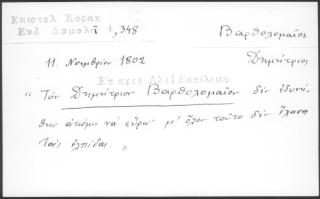 Επιστολ Κοραη
Εκδ Δαμαλᾶ 1,348
Βαρθολομαῖος
Δημήτριος
11. Νοεμβρίου 1802
Επ προς Αλεξ Βασιλειου
"Τὸν Δημήτριον Βαρθολομαῖον δὲν ἐδυνή-
θην ἀκόμη νὰ εὕρω· μ' ὅλον τοῦτο δὲν ἔχασα
τὰς ἐλπίδας."